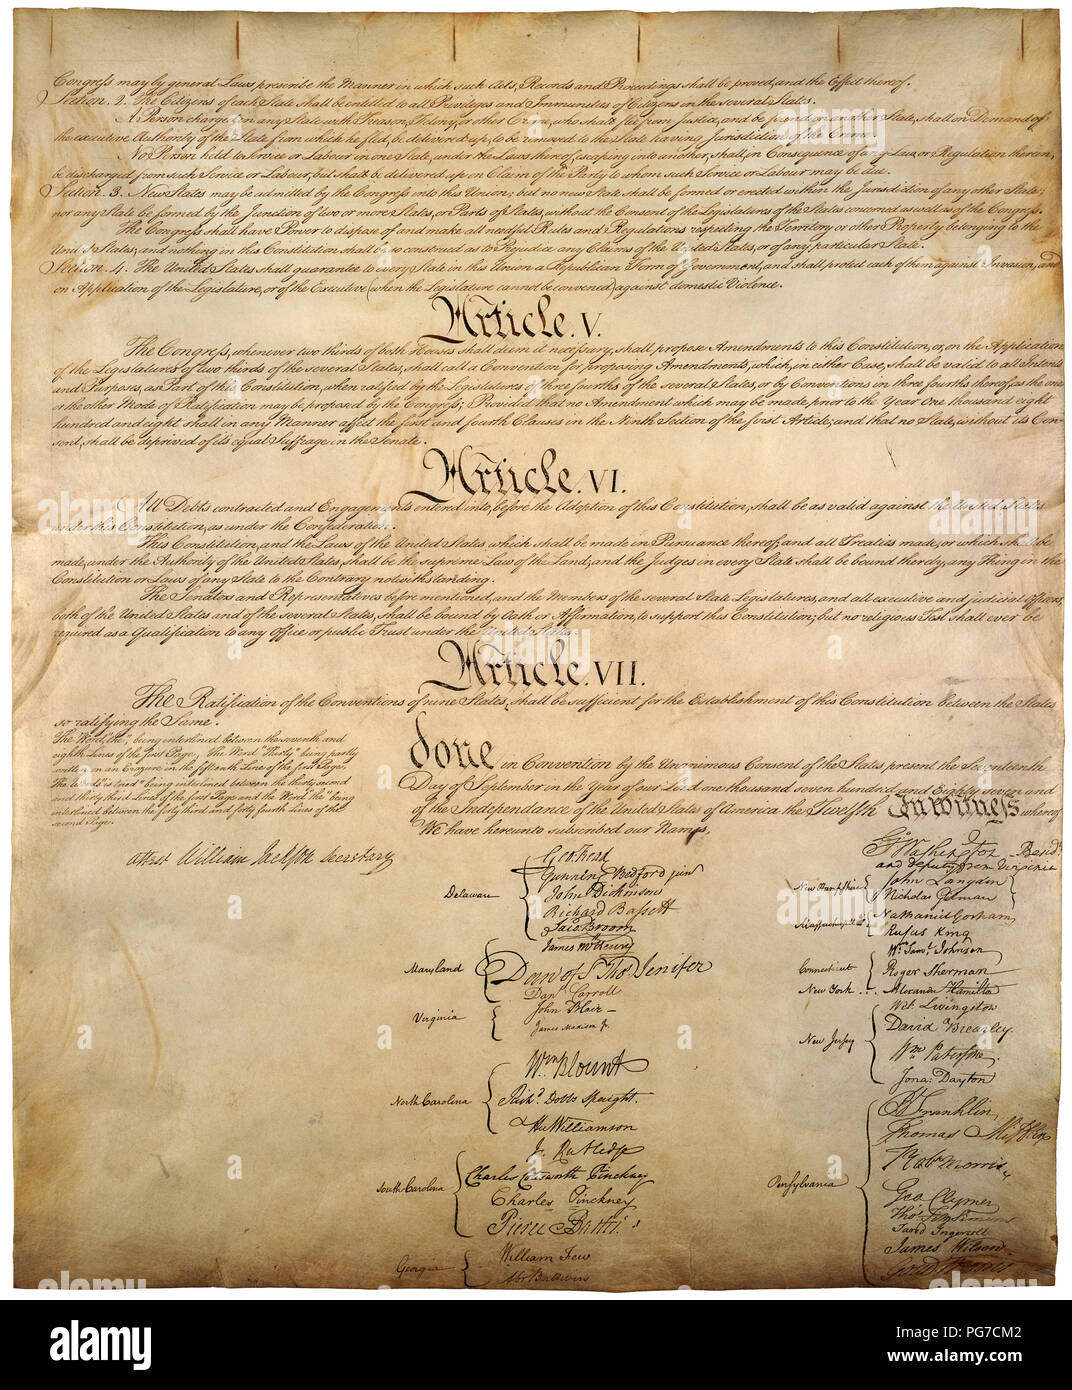 Congress may by general Laws prescribe the Manner in which such Acts, Records and Proceedings shall be proved, and the Effect thereof.
Section. 2. The Citizens of each State shall be entitled to all Privileges and Immunities of Citizens in the several States.
A Person charged in any State with Treason, Felony, or other Crime, who shall flee from Justice, and be found in another State, shall on Demand of
the executive Authority of the State from which he fled, be delivered up, to be removed to the State having Jurisdiction of the Crime.
No Person held to Service or Labour in one State, under the Laws thereof, escaping into another, shall, in Consequence of any Law or Regulation therein,
be discharged from such Service or Labour, but shall be delivered up on Claim of the Party to whom such Service or Labour may be due.
Section. 3. New States may be admitted by the Congress into this Union; but no new State shall be formed or erected within the Jurisdiction of any other State;
nor any State be formed by the Junction of two or more States, or Parts of States, without the Consent of the Legislatures of the States concerned as well as of the Congress.
The Congress shall have Power to dispose of and make all needful Rules and Regulations respecting the Territory or other Property belonging to the
United States; and nothing in this Constitution shall be so construed as to Prejudice any Claims of the United States, or of any particular State.
Section. 4. The United States shall guarantee to every State in this Union a Republican Form of Government, and shall protect each of them against Invasion; and
on Application of the Legislature, or of the Executive (when the Legislature cannot be convened) against domestic Violence.
Article. V.
The Congress, whenever two thirds of both Houses shall deem it necessary, shall propose Amendments to this Constitution, or, on the Application
of the Legislatures of two thirds of the several States, shall call a Convention for proposing Amendments, which, in either Case, shall be valid to all Intents
and Purposes, as Part of this Constitution, when ratified by the Legislatures of three fourths of the several States, or by Conventions in three fourths thereof, as the one
or the other Mode of Ratification may be proposed by the Congress; Provided that no Amendment which may be made prior to the Year One thousand eight
hundred and eight shall in any Manner affect the first and fourth Clauses in the Ninth Section of the first Article; and that no State, without its Con-
sent, shall be deprived of its equal Suffrage in the Senate.
Article. VI.
All Debts contracted and Engagements entered into, before the Adoption of this Constitution, shall be as valid against the United States
under this Constitution, as under the Confederation.
This Constitution, and the Laws of the United States which shall be made in Pursuance thereof; and all Treaties made, or which shall be
made, under the Authority of the United States, shall be the supreme Law of the Land; and the Judges in every State shall be bound thereby, any Thing in the
Constitution or Laws of any State to the Contrary notwithstanding.
The Senators and Representatives before mentioned, and the Members of the several State Legislatures, and all executive and judicial Officers,
both of the United States and of the several States, shall be bound by Oath or Affirmation, to support this Constitution; but no religious Test shall ever be
required as a Qualification to any Office or public Trust under the United States.
Article. VII.
The Ratification of the Conventions of nine States, shall be sufficient for the Establishment of this Constitution between the States
so ratifying the Same.
The Word, "the," being interlined between the seventh and
eighth Lines of the first Page, The Word "Thirty" being partly
written on an Erazure in the fifteenth Line of the first Page,
The Words "is tried" being interlined between the thirty second
and thirty third Lines of the first Page and the Word "the" being
interlined between the forty third and forty fourth Lines of the
second Page.
done in Convention by the Unanimous Consent of the States present the Seventeenth
Day of September in the Year of our Lord one thousand seven hundred and Eighty seven and
of the Independance of the United States of America the Twelfth In witness whereof
We have hereunto subscribed our Names,
Attest William Jackson Secretary
Go: Washington—Presidt
and deputy from Virginia
Delaware
Geo: Read
Gunning Bedford jun
John Dickinson
Richard Bassett
Jaco: Broom
Maryland
James McHenry
Dan of St Thos. Jenifer
Danl Carroll
Virginia
John Blair—
James Madison Jr.
North Carolina
Wm. Blount
Richd. Dobbs Spaight.
Hu Williamson
South Carolina
J. Rutledge
Charles Cotesworth Pinckney
Charles Pinckney
Pierce Butler.
Georgia
William Few
Abr Baldwin
New Hampshire
John Langdon
Nicholas Gilman
Massachusetts
Nathaniel Gorham
Rufus King
Connecticut
Wm. Saml. Johnson
Roger Sherman
New York . . . Alexander Hamilton
New Jersey
Wil: Livingston
David Brearley.
Wm. Paterson.
Jona: Dayton
Pensylvania
B Franklin
Thomas Mifflin
Robt Morris
Geo. Clymer
Thos. FitzSimons
Jared Ingersoll
James Wilson.
Gouv Morris
alamy
Image ID: PG7CM2
www.alamy.com